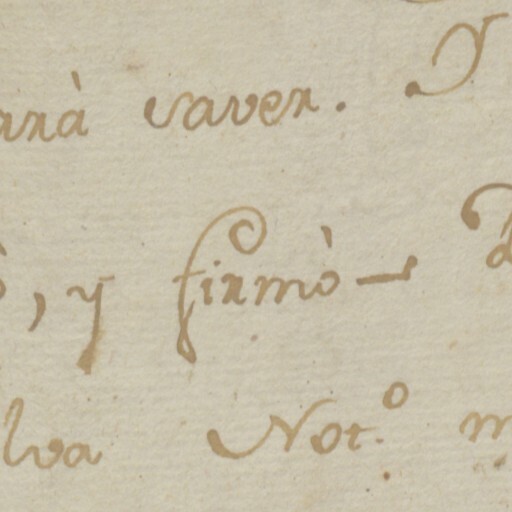 arà saver. Y
ò, y firmò— D
lva Not.º m